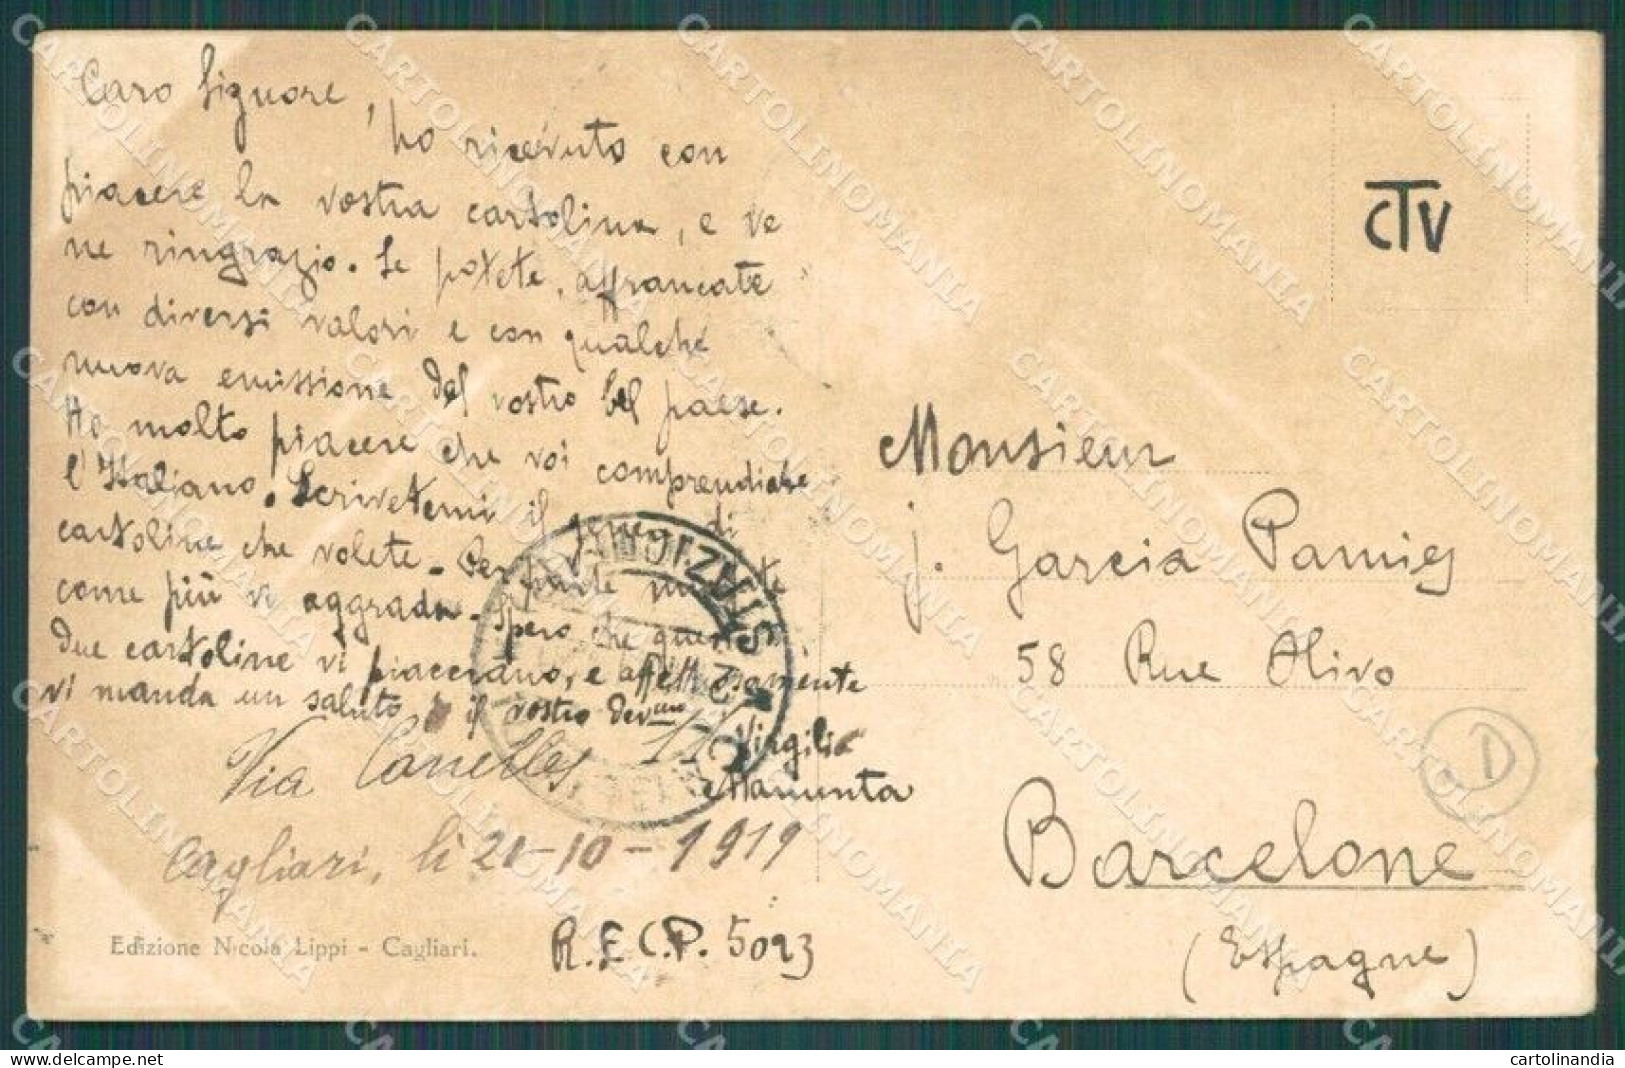 Caro Signore,
ho ricevuto con
piacere la vostra cartolina, e ve
ne ringrazio. Se potete, affrancate
con diversi valori e con qualche
nuova emissione del vostro bel paese.
Ho molto piacere che voi comprendiate
l'Italiano. Scrivetemi il genere di
cartoline che volete - Per parte mia
come più vi aggrada. Spero che queste
due cartoline vi piaceranno, e affettuosamente
vi manda un saluto il vostro dev.mo
Virgilio
Manunta
Via Canelles,
Cagliari, li 21-10-1919
R.E.C.P. 5093
Edizione Nicola Lippi - Cagliari.
CTV
Monsieur
J. Garcia Pamies
58 Rue Olivo
Barcelone
(Espagne)
D
CARTOLINOMANIA
cartolinandia
delcampe.net